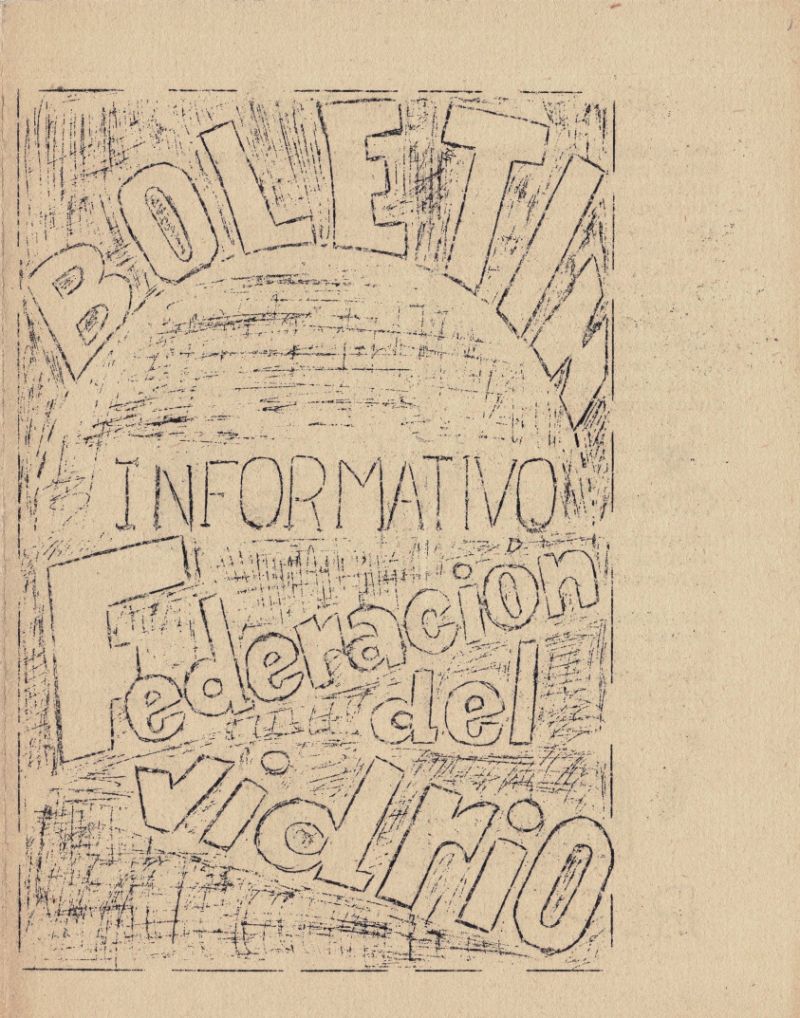 BOLETIN
INFORMATIVO
Federación
del
vidrio